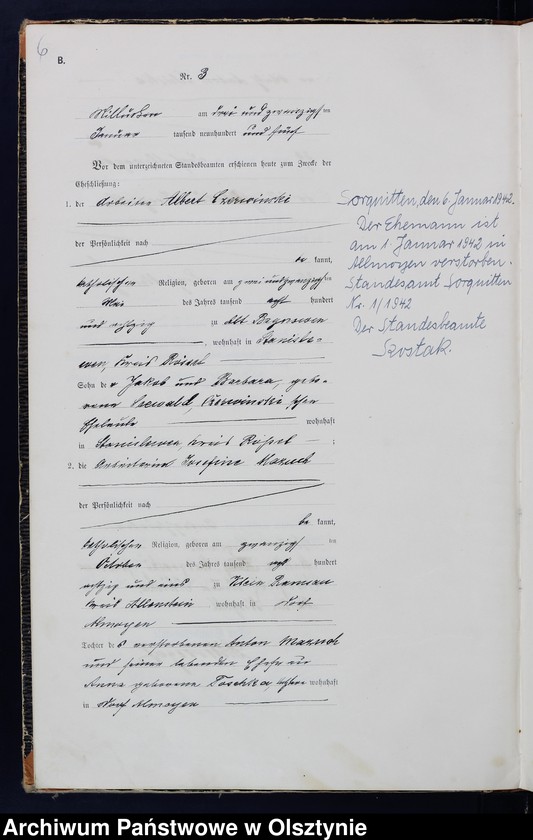 6
B.
Nr. 3
am drei und zwanzigsten
Januar tausend neunhundert und fünf
Vor dem unterzeichneten Standesbeamten erschienen heute zum Zwecke der
Eheschließung:
1. der Arbeiter Albert Czerwinski
der Persönlichkeit nach
be kannt,
katholischer Religion, geboren am zwei und zwanzigsten
Mai des Jahres tausend acht hundert
und achtzig zu Alt
, wohnhaft in Stanisle-
wen, Kreis Rössel
Sohn der Jakob und Barbara, gebo-
rene Czerwinski schen
Eheleute wohnhaft
in Stanislewen, Kreis Rössel ;
2. die Arbeiterin Josefine
der Persönlichkeit nach
be kannt,
katholischer Religion, geboren am zwanzigsten
October des Jahres tausend acht hundert
achtzig und eins zu Klein Ramsau
Kreis Allenstein wohnhaft in Dorf
Almoyen
Tochter des verstorbenen Anton
und seiner lebenden Ehefrau
Anna geborene wohnhaft
in Dorf Almoyen
Sorquitten, den 6. Januar 1942.
Der Ehemann ist
am 1 Januar 1942 in
Allmoyen verstorben.
Standesamt Sorquitten
Nr. 1/1942
Der Standesbeamte
Szostak.
Archiwum Państwowe w Olsztynie